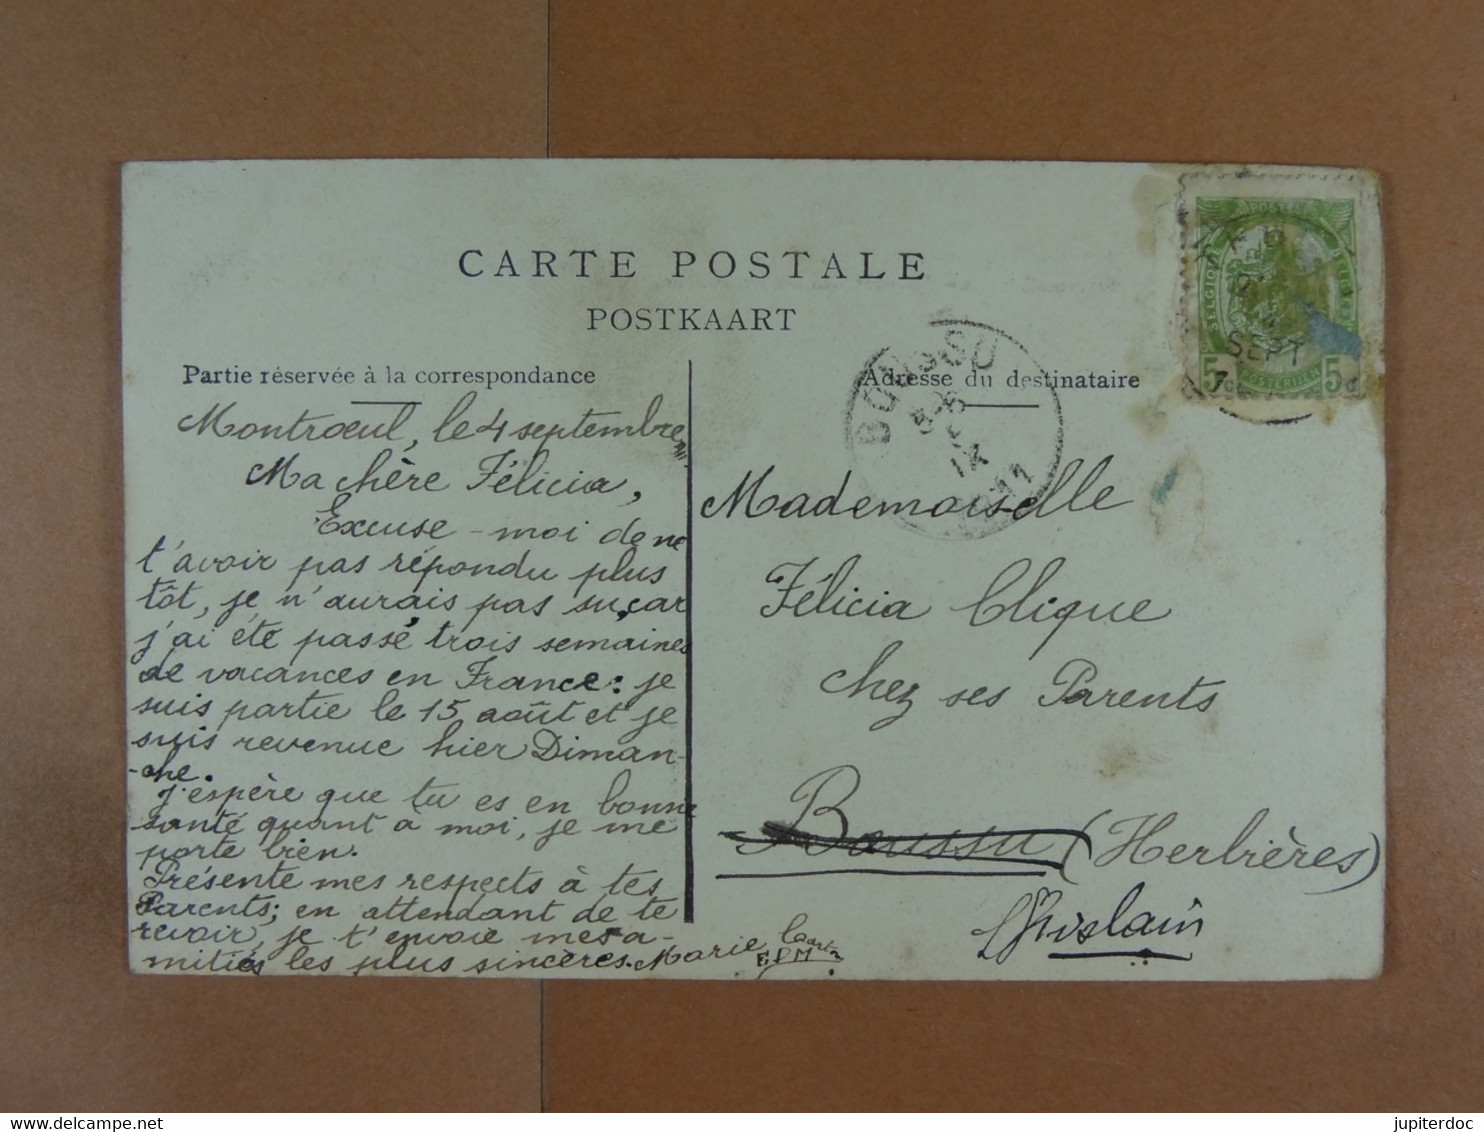 CARTE POSTALE
POSTKAART
Partie réservée à la correspondance
Adresse du destinataire
Montrœul, le 4 septembre
Ma chère Félicia,
Excuse-moi de ne
t'avoir pas répondu plus
tôt, je n'aurais pas su, car
j'ai été passé trois semaines
de vacances en France: je
suis partie le 15 août et je
suis revenue hier Diman-
-che.
J'espère que tu es en bonne
santé quant à moi, je me
porte bien.
Présente mes respects à tes
Parents; en attendant de te
revoir, je t'envoie mes a-
mitiés les plus sincères. Marie
Mademoiselle
Félicia Clique
chez ses Parents
Boussu (Herbières)
Ghislain
BOUSSU
IX
1911
POSTES
BELGIQUE
SEPT
7
5c POSTERIJEN 5c
jupiterdoc